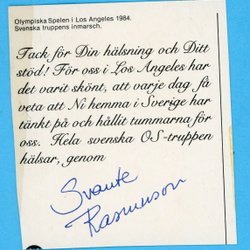 Olympiska Spelen i Los Angeles 1984.
Svenska truppens inmarsch.
Tack för Din hälsning och Ditt
stöd! För oss i Los Angeles har
det varit skönt, att varje dag få
veta att Ni hemma i Sverige har
tänkt på och hållit tummarna för
oss. Hela svenska OS-truppen
hälsar, genom
Svante
Rasmuson